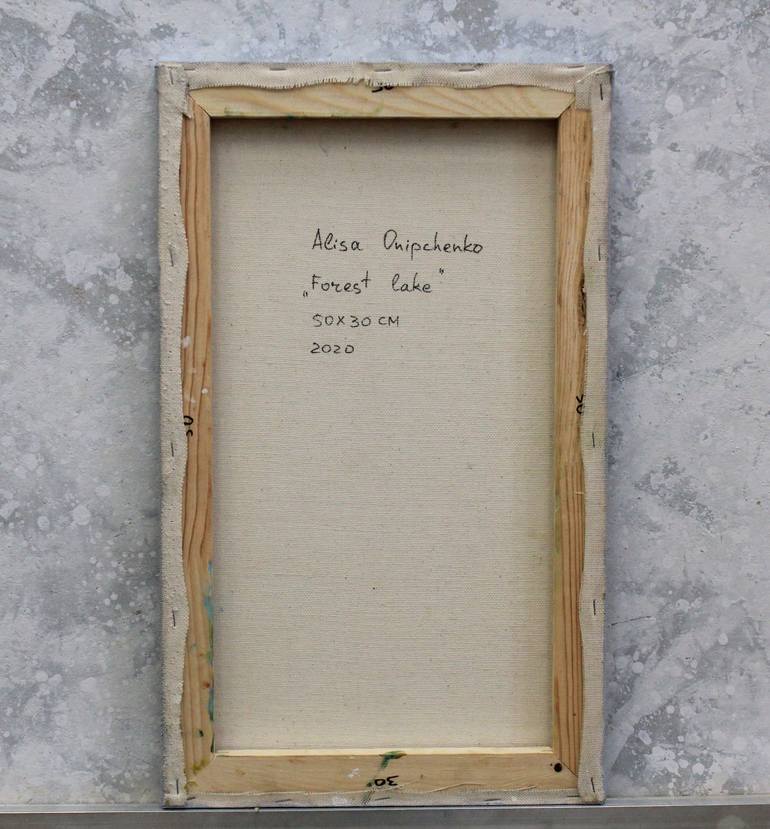 30
Alisa Onipchenko
„Forest lake"
50x30 CM
2020
50
50
30